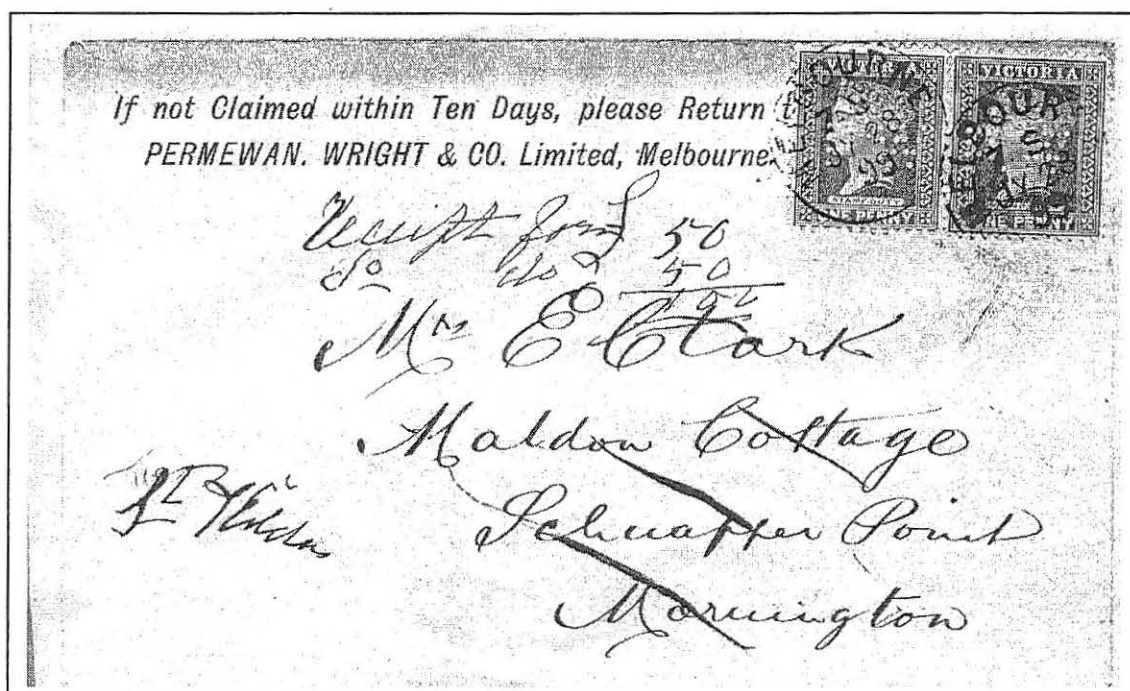 If not Claimed within Ten Days, please Return t
PERMEWAN. WRIGHT & CO. Limited, Melbourne.
VICTORIA
STAMP DUTY
VICTORIA
MELBOURNE
Receipt for £ 50
do do 50
Mrs E Clark
Maldon Cottage
Schnapper Point
Mornington
St Kilda